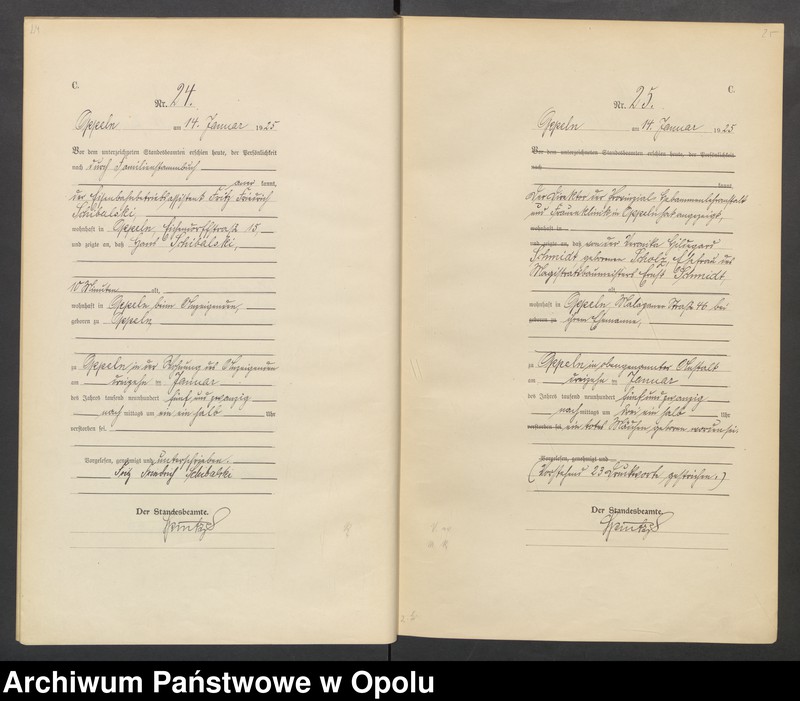 24
C.
Nr. 24.
Oppeln am 14. Januar 1925
Vor dem unterzeichneten Standesbeamten erschien heute, der Persönlichkeit
nach durch Familienstammbuch
kannt,
der Eisenbahnbetriebsassistent Fritz Friedrich
Schibalski,
wohnhaft in Oppeln, Eichendorffstraße 15,
und zeigte an, daß Horst Schibalski,
10 Minuten alt,
wohnhaft in Oppeln beim Anzeigenden,
geboren zu Oppeln
zu Oppeln in der Wohnung des Anzeigenden
am dreizehn Januar
des Jahres tausend neunhundert fünf und zwanzig
nach mittags um ein ein halb Uhr
verstorben sei.
Vorgelesen, genehmigt und unterschrieben.
Fritz Friedrich Schibalski
Der Standesbeamte.
25
C.
Nr. 25.
Oppeln am 14. Januar 1925
Vor dem unterzeichneten Standesbeamten erschien heute, der Persönlichkeit
nach
kannt,
Der Direktor der Provinzial Hebammenlehranstalt
und Frauenklinik in Oppeln hat angezeigt,
wohnhaft in
und zeigte an, daß von der Veronika Hildegard
Schmidt geborenen Scholz, Ehefrau des
Magistratsbaumeisters Ernst Schmidt,
alt,
wohnhaft in Oppeln, Malapaner Straße 46 bei
geboren zu ihrem Ehemanne,
zu Oppeln in obengenannter Anstalt
am dreizehn Januar
des Jahres tausend neunhundert fünf und zwanzig
nach mittags um drei ein halb Uhr
verstorben sei, ein totes Mädchen geboren worden sei.
Vorgelesen, genehmigt und
(Vorstehend 23 Druckworte gestrichen.)
Der Standesbeamte.
Archiwum Państwowe w Opolu